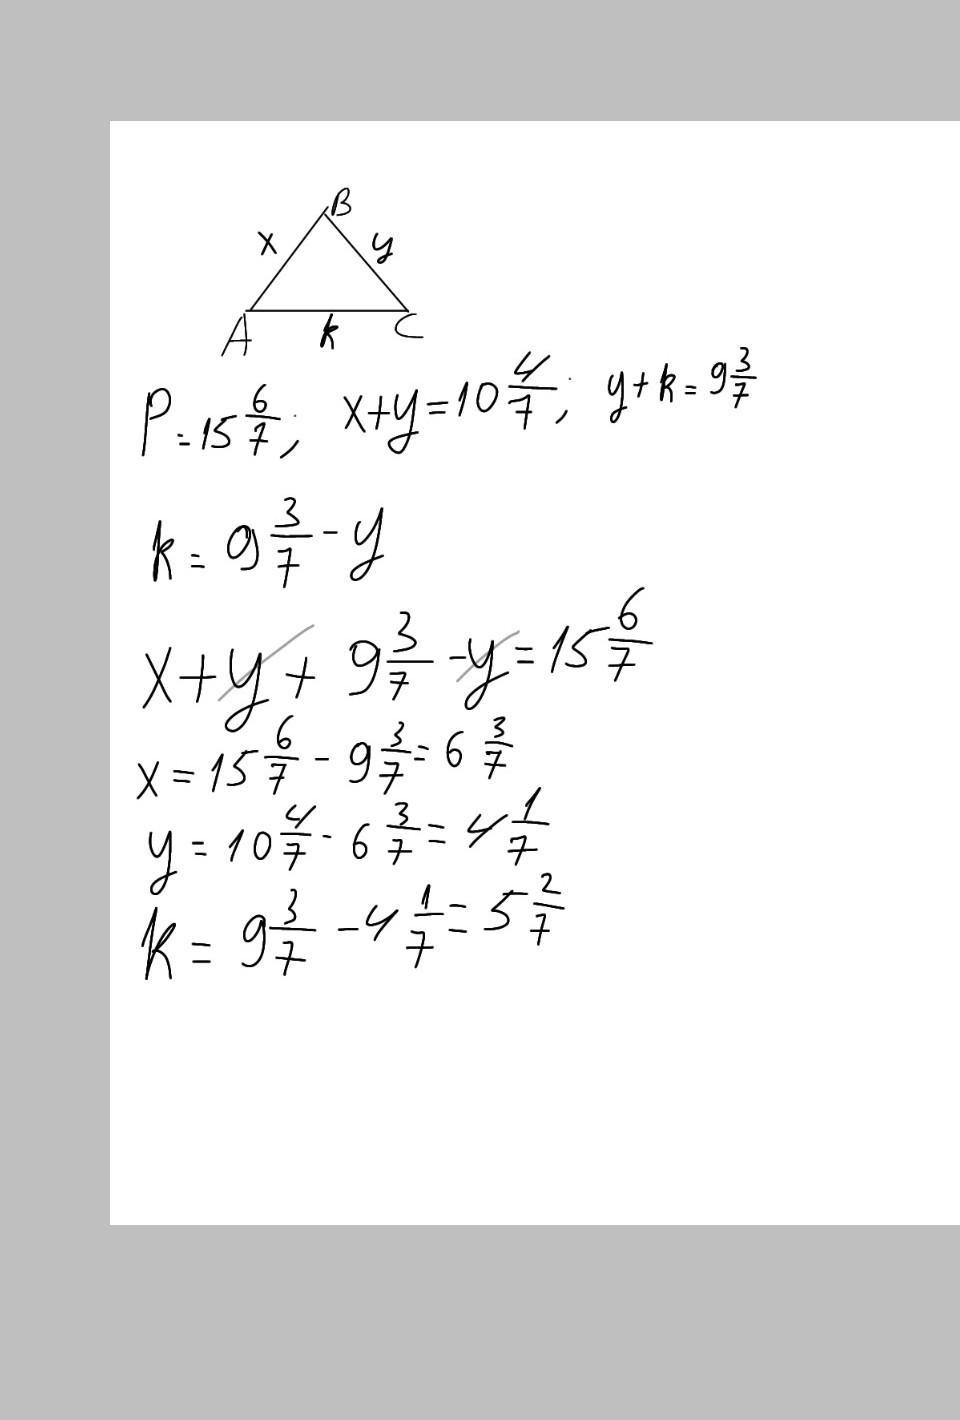 B
x y
A k C
P = 15 6/7; x+y = 10 4/7; y+k = 9 3/7
k = 9 3/7 - y
x + y + 9 3/7 - y = 15 6/7
x = 15 6/7 - 9 3/7 = 6 3/7
y = 10 4/7 - 6 3/7 = 4 1/7
k = 9 3/7 - 4 1/7 = 5 2/7